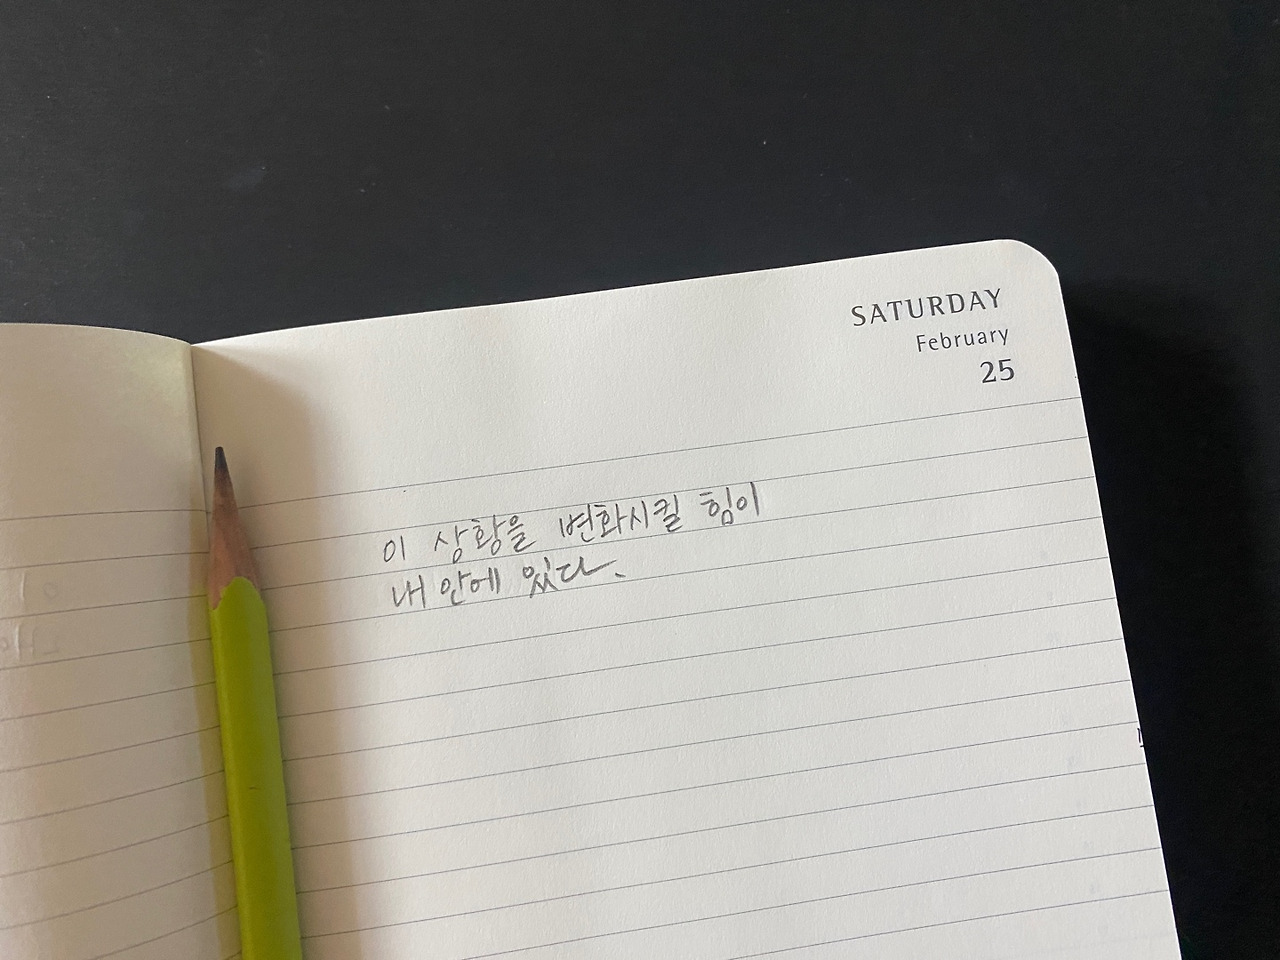 SATURDAY
February
25
이 상황을 변화시킬 힘이
내 안에 있다.